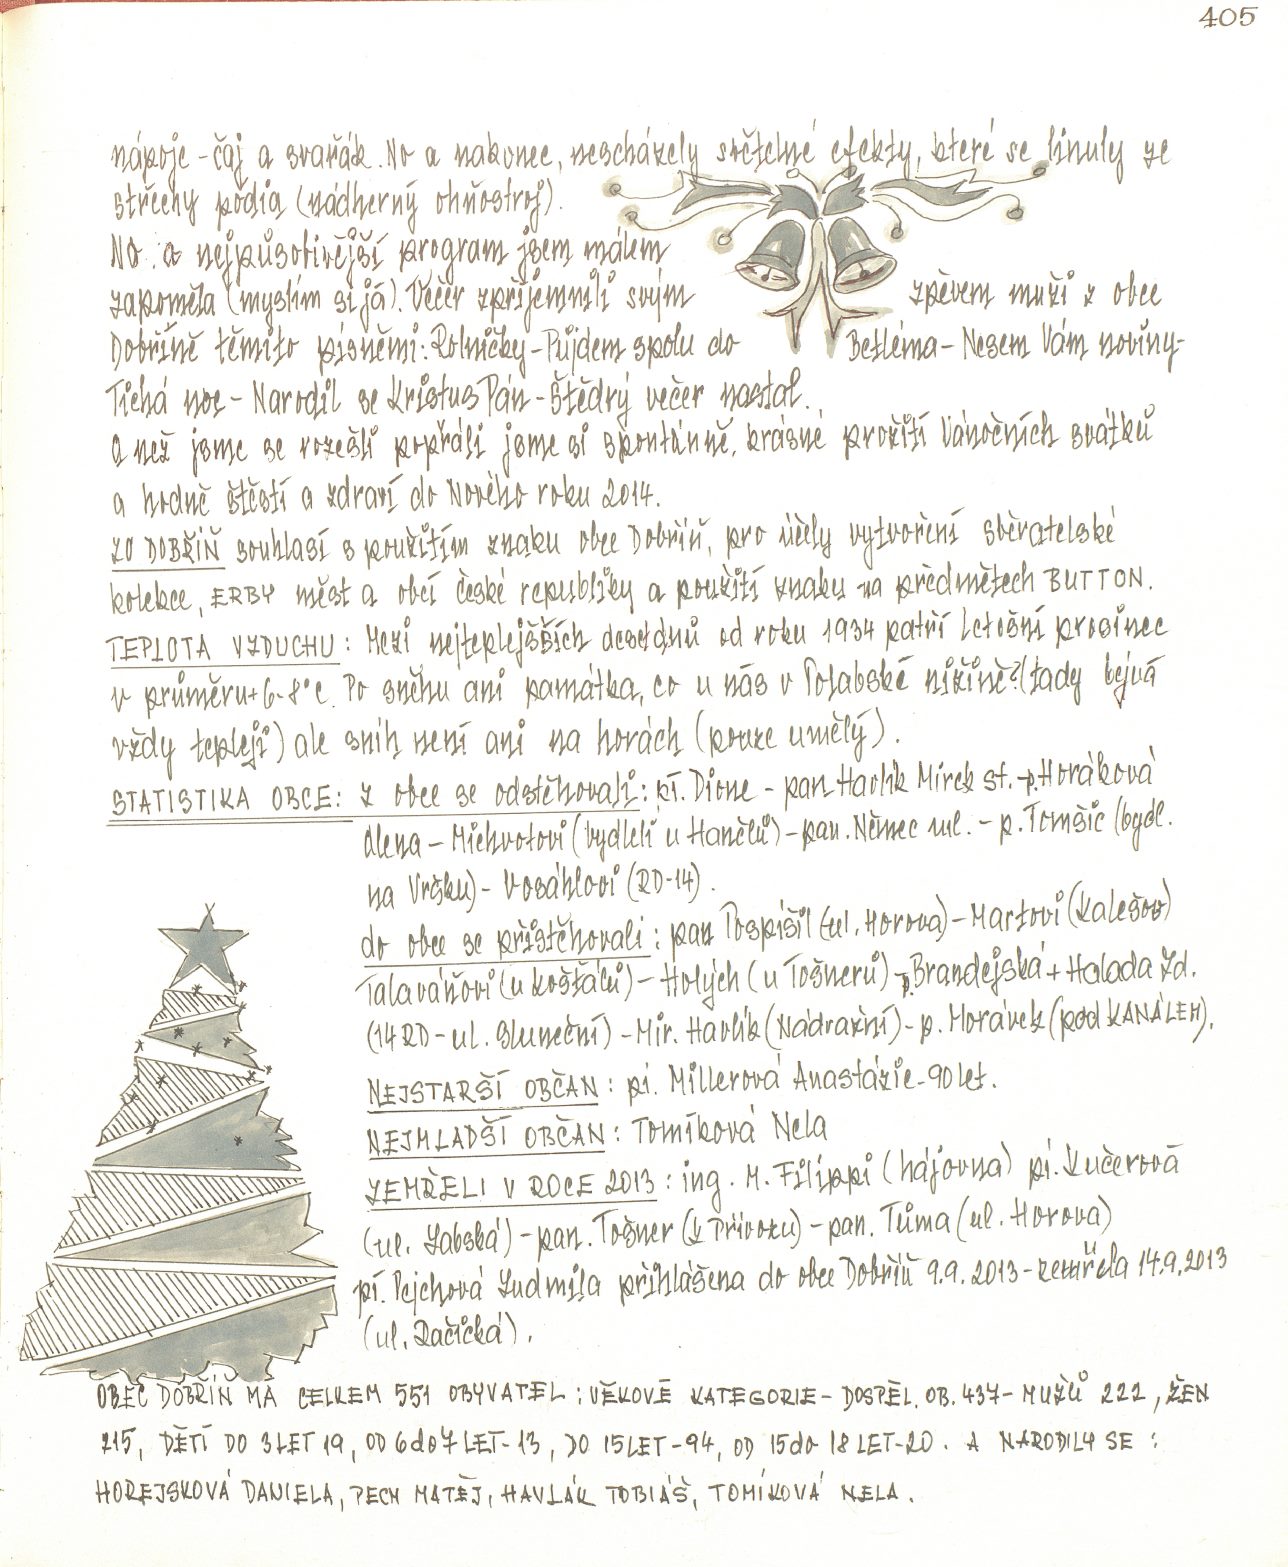 405
nápoje - čaj a svařák. No a nakonec, nescházely světelné efekty, které se linuly ze
střechy pódia (nádherný ohňostroj).
No a nejpůsobivější program jsem málem
zapoměla (myslím si já). Večer zpříjemnili svým zpěvem muži z obce
Dobříně těmito písněmi: Rolničky - Půjdem spolu do Betléma - Nesem Vám noviny -
Tichá noc - Narodil se Kristus Pán - Štědrý večer nastal.
A než jsme se rozešli popřáli jsme si spontánně, krásné prožití Vánočních svátků
a hodně štěstí a zdraví do Nového roku 2014.
ZO DOBŘÍŇ souhlasí s použitím znaku obce Dobříň, pro účely vytvoření sběratelské
kolekce, ERBY měst a obcí české republiky a použití znaku na předmětech BUTTON.
TEPLOTA VZDUCHU: Mezi nejteplejších deset dnů od roku 1934 patří letošní prosinec
v průměru +6-8°C. Po sněhu ani památka, co u nás v Polabské nížině? (tady bývá
vždy tepleji) ale sníh není ani na horách (pouze umělý).
STATISTIKA OBCE: z obce se odstěhovali: pí. Dione - pan Havlík Mirek st. - p. Horáková
Alena - Michvotovi (bydleli u Hančlů) - pan. Němec ml. - p. Tomšic (bydl.
na Vršku) - Vosáhlovi (RD-14).
do obce se přistěhovali: pan Pospíšil (ul. Horova) - Martovi (Kalešov)
Talaváňovi (u Košťálů) - Holých (u Tošnerů) - p. Brandejská + Halada Zd.
(14 RD - ul. Sluneční) - Mir. Havlík (Nádražní) - p. Morávek (pod KANÁLEM).
NEJSTARŠÍ OBČAN: pí. Millerová Anastázie - 90 let.
NEJMLADŠÍ OBČAN: Tomíková Nela
ZEMŘELI V ROCE 2013: ing. M. Filippi (hájovna) pí. Kučerová
(ul. Labská) - pan. Tošner (k Přívozu) - pan. Tůma (ul. Horova)
pí. Pejchová Ludmila přihlášena do obce Dobříň 9.9.2013 - zemřela 14.9.2013
(ul. Račická).
OBEC DOBŘÍŇ MÁ CELKEM 551 OBYVATEL: VĚKOVÉ KATEGORIE - DOSPĚL. OB. 437 - MUŽŮ 222, ŽEN
215, DĚTÍ DO 3 LET 19, OD 6 do 7 LET - 13, DO 15 LET - 94, OD 15 do 18 LET - 20. A NARODILY SE:
HOREJSKOVÁ DANIELA, PECH MATĚJ, HAVLÁK TOBIÁŠ, TOMÍKOVÁ NELA.